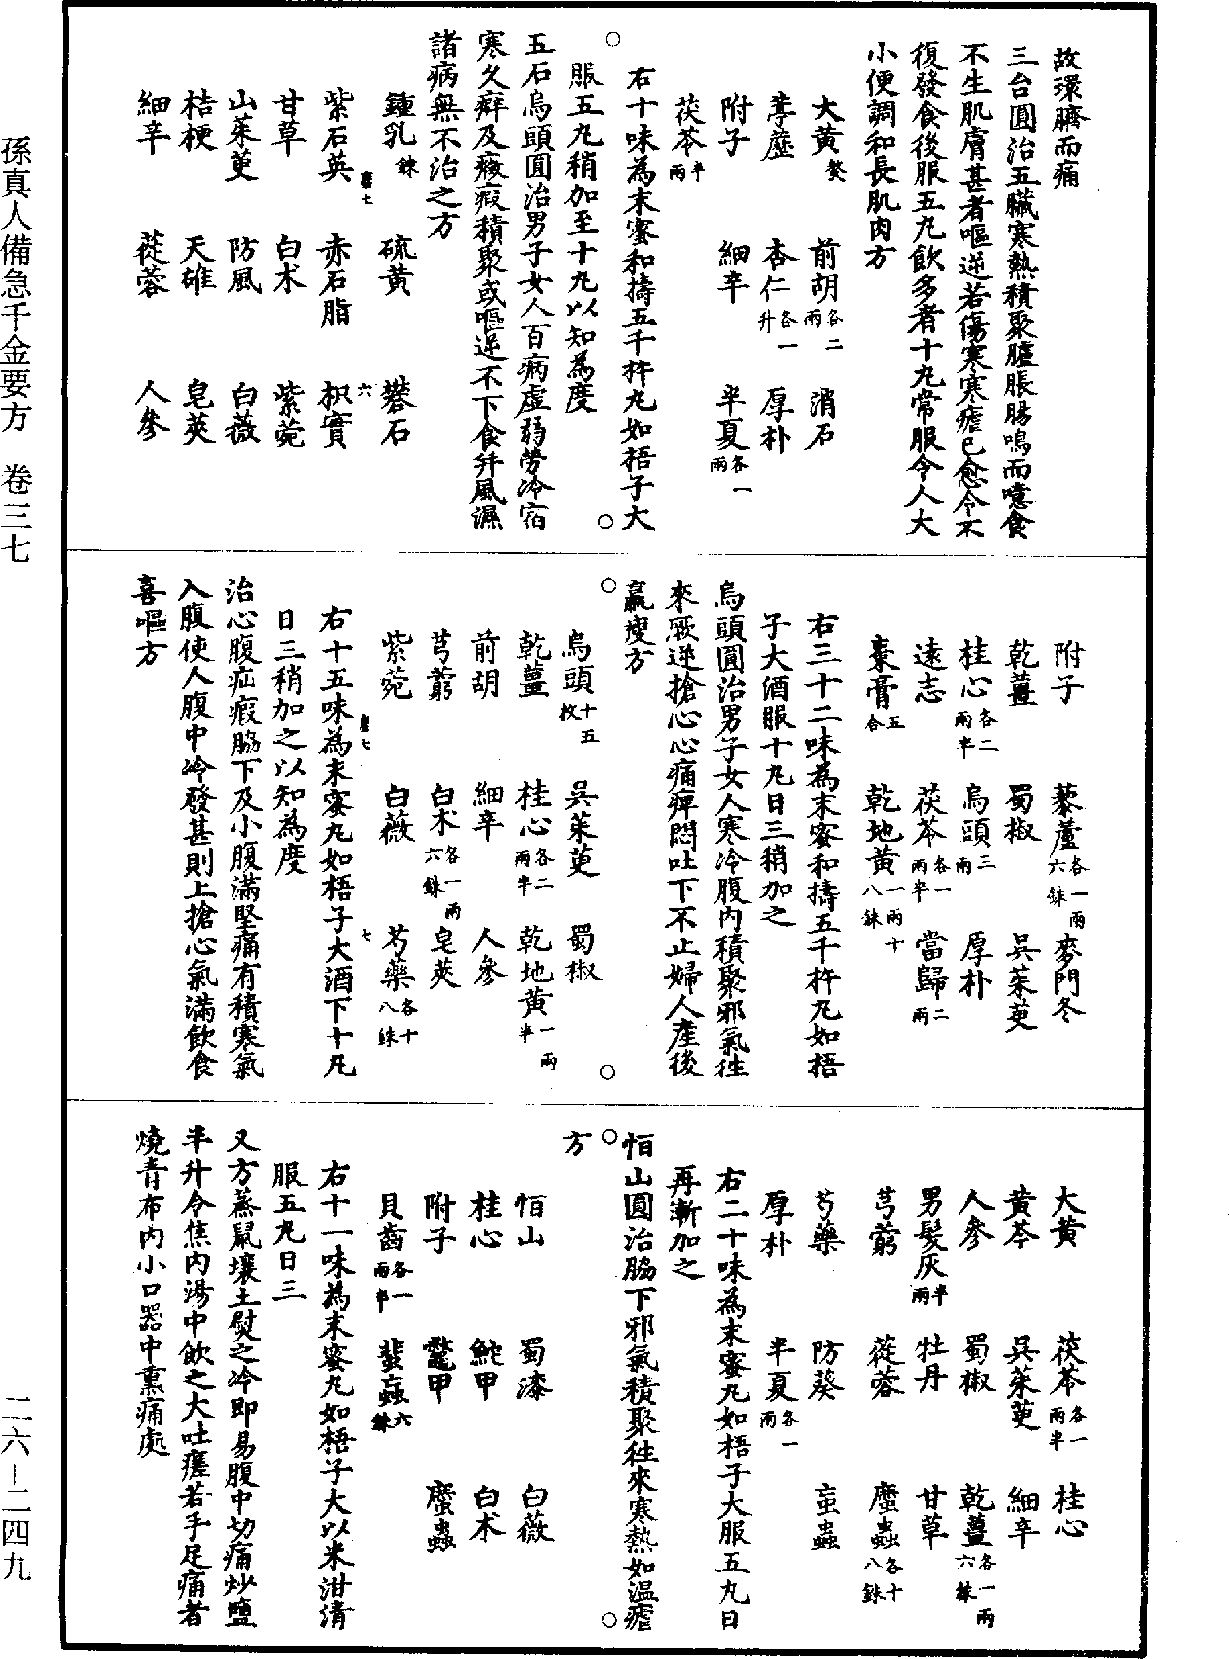 孫真人備急千金要方　卷三七
二六—二四九
故環臍而痛
三台圓治五臟寒熱積聚臚脹腸鳴而噫食
不生肌膚甚者嘔逆若傷寒寒瘧已愈令不
復發食後服五丸飲多者十丸常服令人大
小便調和長肌肉方
大黃熬　前胡各二兩　消石
葶藶　杏仁各一升　厚朴
附子　細辛　半夏各一兩
茯苓半兩
右十味為末蜜和擣五千杵丸如梧子大
服五丸稍加至十丸以知為度
五石烏頭圓治男子女人百病虛弱勞冷宿
寒久癖及癥瘕積聚或嘔逆不下食幷風濕
諸病無不治之方
鍾乳鍊　硫黃　礬石
紫石英　赤石脂　枳實
甘草　白朮　紫菀
山茱萸　防風　白薇
桔梗　天雄　皂莢
細辛　蓯蓉　人參
附子　藜蘆各一兩六銖　麥門冬
乾薑　蜀椒　吳茱萸
桂心各二兩半　烏頭三兩　厚朴
遠志　茯苓各一兩半　當歸二兩
棗膏五合　乾地黃一兩十八銖
右三十二味為末蜜和擣五千杵丸如梧
子大酒服十丸日三稍加之
烏頭圓治男子女人寒冷腹內積聚邪氣徃
來厥逆搶心心痛痺悶吐下不止婦人產後
羸瘦方
烏頭十五枚　吳茱萸　蜀椒
乾薑　桂心各二兩半　乾地黃一兩半
前胡　細辛　人參
芎藭　白朮各一兩六銖　皂莢
紫菀　白薇　芍藥各十八銖
右十五味為末蜜丸如梧子大酒下十丸
日三稍加之以知為度
治心腹疝瘕脇下及小腹滿堅痛有積寒氣
入腹使人腹中冷發甚則上搶心氣滿飲食
喜嘔方
大黃　茯苓各一兩半　桂心
黃芩　吳茱萸　細辛
人參　蜀椒　乾薑各一兩六銖
男髮灰半兩　牡丹　甘草
芎藭　蓯蓉　䗪蟲各十八銖
芍藥　防葵　䖟蟲
厚朴　半夏各一兩
右二十味為末蜜丸如梧子大服五丸日
再漸加之
恒山圓治脇下邪氣積聚徃來寒熱如溫瘧
方
恒山　蜀漆　白薇
桂心　鮀甲　白朮
附子　鼈甲　䗪蟲
貝齒各一兩半　蜚蝱六銖
右十一味為末蜜丸如梧子大以米泔清
服五丸日三
又方蒸鼠壤土熨之冷即易腹中切痛炒鹽
半升令焦內湯中飲之大吐瘥若手足痛者
燒青布內小口器中熏痛處